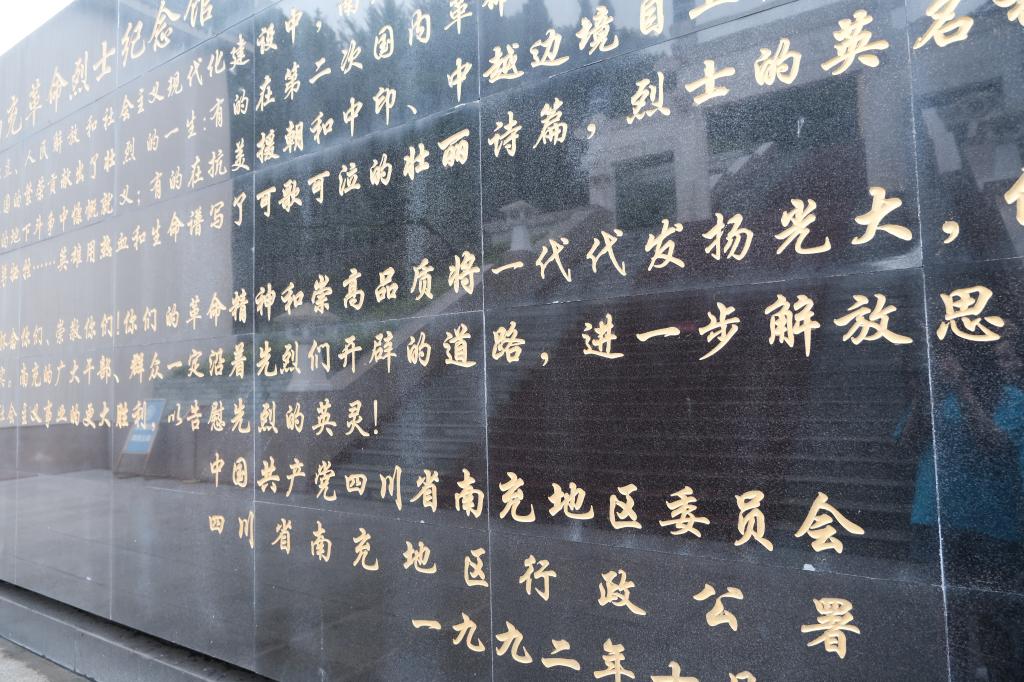 充革命烈士纪念馆
人民解放和社会主义现代化建设中，南
国的繁荣贡献出了壮烈的一生：有的在第二次国内革
的地下斗争中慷慨就义；有的在抗美援朝和中印、中越边境自
……英雄用热血和生命谱写了可歌可泣的壮丽诗篇，烈士的英名
你们、崇敬你们！你们的革命精神和崇高品质将一代代发扬光大，
南充的广大干部、群众一定沿着先烈们开辟的道路，进一步解放思
社会主义事业的更大胜利，以告慰先烈的英灵！
中国共产党四川省南充地区委员会
四川省南充地区行政公署
一九九二年